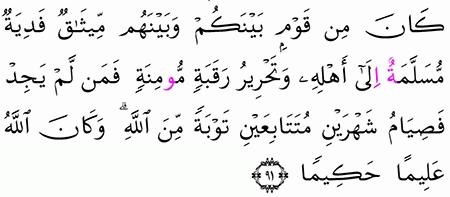 كَانَ مِن قَوْمِۭ بَيْنَكُمْ وَبَيْنَهُم مِّيثَٰقٌ فَدِيَةٌ
مُّسَلَّمَةٌ اِلَىٰٓ أَهْلِهِۦ وَتَحْرِيرُ رَقَبَةٍ مُّومِنَةٍ فَمَن لَّمْ يَجِدْ
فَصِيَامُ شَهْرَيْنِ مُتَتَابِعَيْنِ تَوْبَةً مِّنَ اَ۬للَّهِ ۗ وَكَانَ اَ۬للَّهُ
عَلِيمًا حَكِيمًا ٩١